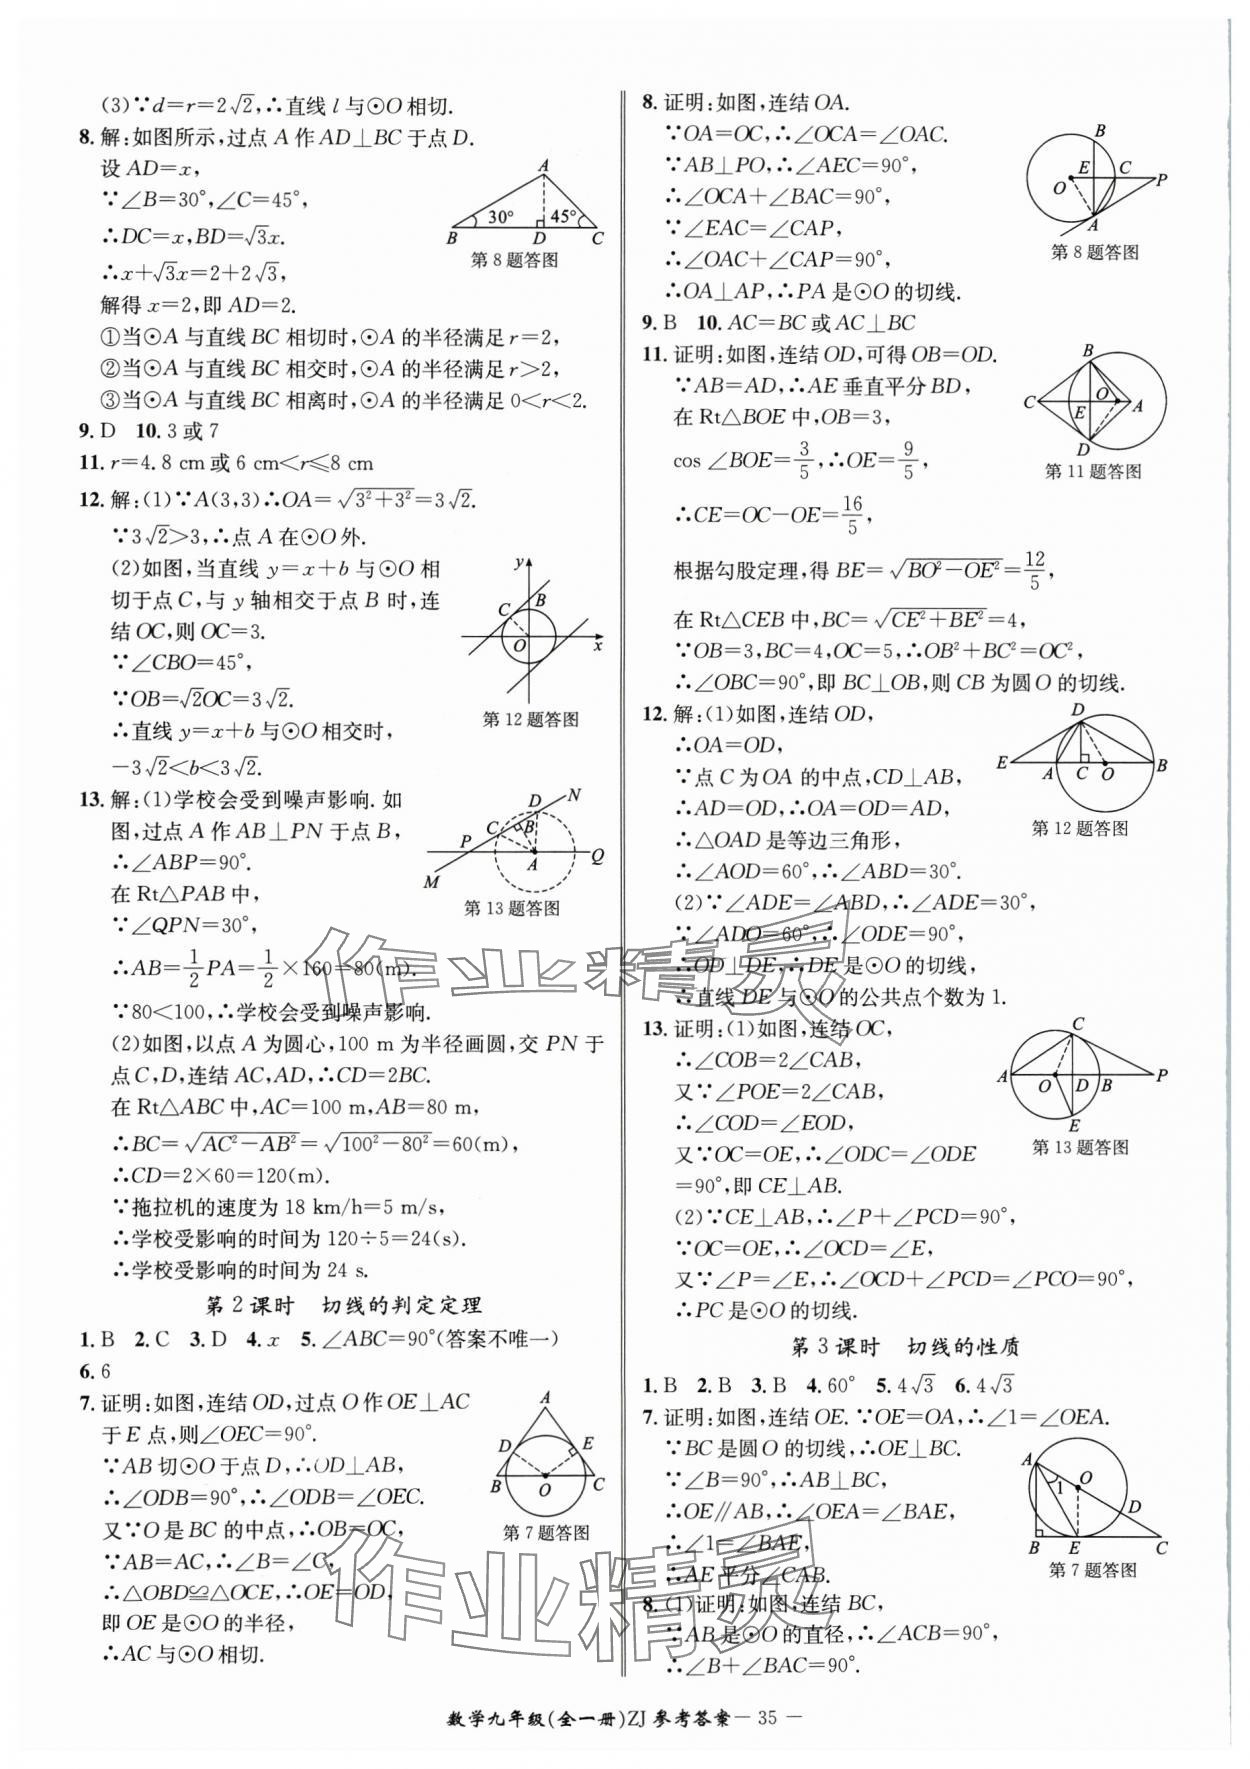 (3)∵d=r=2√2,∴直线 l 与⊙O 相切.
8. 解:如图所示,过点 A 作 AD⊥BC 于点 D.
设 AD=x,
∵∠B=30°,∠C=45°,
∴DC=x,BD=√3x.
∴x+√3x=2+2√3,
解得 x=2,即 AD=2.
A
30°
45°
B
D
C
第 8 题答图
①当⊙A 与直线 BC 相切时,⊙A 的半径满足 r=2,
②当⊙A 与直线 BC 相交时,⊙A 的半径满足 r>2,
③当⊙A 与直线 BC 相离时,⊙A 的半径满足 0<r<2.
9. D 10. 3 或 7
11. r=4.8 cm 或 6 cm<r≤8 cm
12. 解:(1)∵A(3,3)∴OA=√(3²+3²)=3√2.
∵3√2>3,∴点 A 在⊙O 外.
(2)如图,当直线 y=x+b 与⊙O 相
切于点 C,与 y 轴相交于点 B 时,连
结 OC,则 OC=3.
∵∠CBO=45°,
∵OB=√2OC=3√2.
∴直线 y=x+b 与⊙O 相交时,
-3√2<b<3√2.
y
C
B
O
x
第 12 题答图
13. 解:(1)学校会受到噪声影响. 如
图,过点 A 作 AB⊥PN 于点 B,
∴∠ABP=90°.
在 Rt△PAB 中,
∵∠QPN=30°,
D
N
C
B
P
A
Q
M
第 13 题答图
∴AB=1/2 PA=1/2×160=80(m).
∵80<100,∴学校会受到噪声影响.
(2)如图,以点 A 为圆心,100 m 为半径画圆,交 PN 于
点 C,D,连结 AC,AD,∴CD=2BC.
在 Rt△ABC 中,AC=100 m,AB=80 m,
∴BC=√(AC²-AB²)=√(100²-80²)=60(m),
∴CD=2×60=120(m).
∵拖拉机的速度为 18 km/h=5 m/s,
∴学校受影响的时间为 120÷5=24(s).
∴学校受影响的时间为 24 s.
第 2 课时 切线的判定定理
1. B 2. C 3. D 4. x 5. ∠ABC=90°(答案不唯一)
6. 6
7. 证明:如图,连结 OD,过点 O 作 OE⊥AC
于 E 点,则∠OEC=90°.
∵AB 切⊙O 于点 D,∴OD⊥AB,
∴∠ODB=90°,∴∠ODB=∠OEC.
又∵O 是 BC 的中点,∴OB=OC,
∵AB=AC,∴∠B=∠C,
∴△OBD≌△OCE,∴OE=OD,
即 OE 是⊙O 的半径,
∴AC 与⊙O 相切.
A
D
E
B
O
C
第 7 题答图
8. 证明:如图,连结 OA.
∵OA=OC,∴∠OCA=∠OAC.
∵AB⊥PO,∴∠AEC=90°,
∴∠OCA+∠BAC=90°,
∵∠EAC=∠CAP,
∴∠OAC+∠CAP=90°,
∴OA⊥AP,∴PA 是⊙O 的切线.
B
E
C
O
P
A
第 8 题答图
9. B 10. AC=BC 或 AC⊥BC
11. 证明:如图,连结 OD,可得 OB=OD.
∵AB=AD,∴AE 垂直平分 BD,
在 Rt△BOE 中,OB=3,
cos ∠BOE=3/5,∴OE=9/5,
∴CE=OC-OE=16/5,
B
C
E
O
A
D
第 11 题答图
根据勾股定理,得 BE=√(BO²-OE²)=12/5,
在 Rt△CEB 中,BC=√(CE²+BE²)=4,
∵OB=3,BC=4,OC=5,∴OB²+BC²=OC²,
∴∠OBC=90°,即 BC⊥OB,则 CB 为圆 O 的切线.
12. 解:(1)如图,连结 OD,
∴OA=OD,
∵点 C 为 OA 的中点,CD⊥AB,
∴AD=OD,∴OA=OD=AD,
∴△OAD 是等边三角形,
∴∠AOD=60°,∴∠ABD=30°.
D
E
A
C
O
B
第 12 题答图
(2)∵∠ADE=∠ABD,∴∠ADE=30°,
∵∠ADO=60°,∴∠ODE=90°,
∴OD⊥DE,∴DE 是⊙O 的切线,
∴直线 DE 与⊙O 的公共点个数为 1.
13. 证明:(1)如图,连结 OC,
∴∠COB=2∠CAB,
又∵∠POE=2∠CAB,
∴∠COD=∠EOD,
又∵OC=OE,∴∠ODC=∠ODE
=90°,即 CE⊥AB.
C
A
O
D
B
P
E
第 13 题答图
(2)∵CE⊥AB,∴∠P+∠PCD=90°,
∵OC=OE,∴∠OCD=∠E,
又∵∠P=∠E,∴∠OCD+∠PCD=∠PCO=90°,
∴PC 是⊙O 的切线.
第 3 课时 切线的性质
1. B 2. B 3. B 4. 60° 5. 4√3 6. 4√3
7. 证明:如图,连结 OE. ∵OE=OA,∴∠1=∠OEA.
∵BC 是圆 O 的切线,∴OE⊥BC.
∵∠B=90°,∴AB⊥BC,
∴OE∥AB,∴∠OEA=∠BAE,
∴∠1=∠BAE,
∴AE 平分∠CAB.
A
O
1
D
B
E
C
第 7 题答图
8. (1)证明:如图,连结 BC,
∵AB 是⊙O 的直径,∴∠ACB=90°,
∴∠B+∠BAC=90°.
作业精灵
作业精灵
数学九年级(全一册)ZJ 参考答案— 35 —